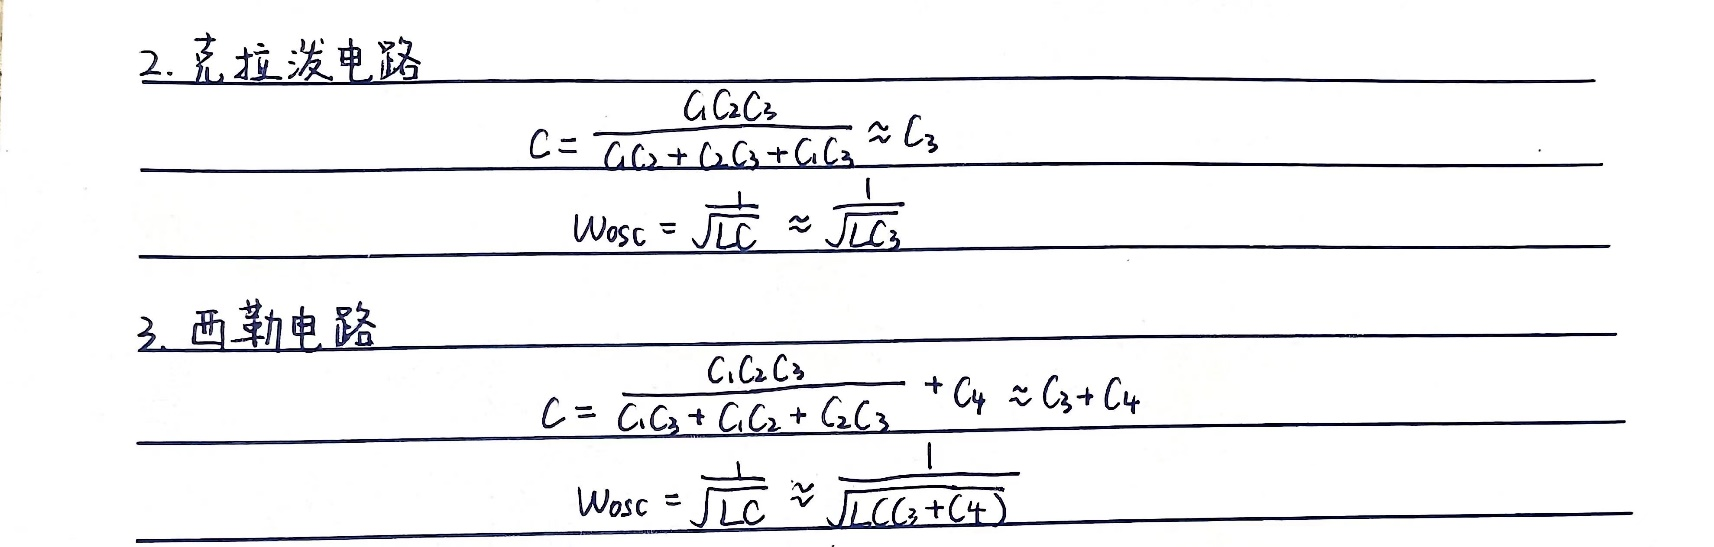 2. 克拉泼电路
C = \frac{C_1C_2C_3}{C_1C_2+C_2C_3+C_1C_3} ≈ C_3
W_{osc} = \frac{1}{\sqrt{LC}} ≈ \frac{1}{\sqrt{LC_3}}
3. 西勒电路
C = \frac{C_1C_2C_3}{C_1C_3+C_1C_2+C_2C_3} + C_4 ≈ C_3+C_4
W_{osc} = \frac{1}{\sqrt{LC}} ≈ \frac{1}{\sqrt{L(C_3+C_4)}}